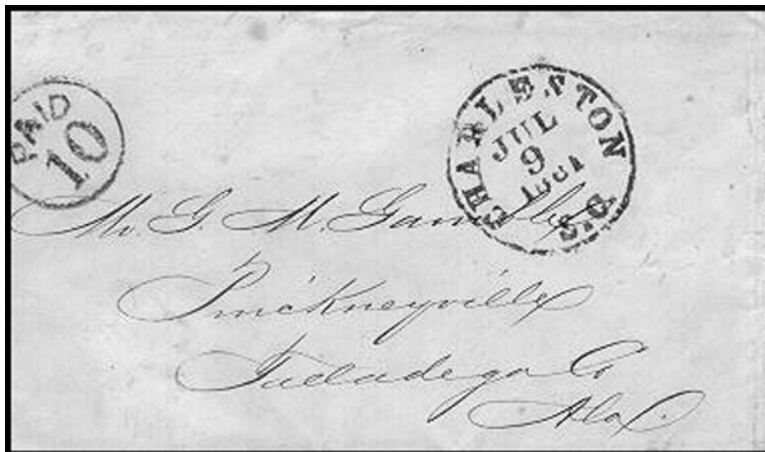 PAID
10
CHARLESTON
JUL
9
1861
S.C.
Mr. G. M.
Pinckneyville
Talladega Co
Ala.